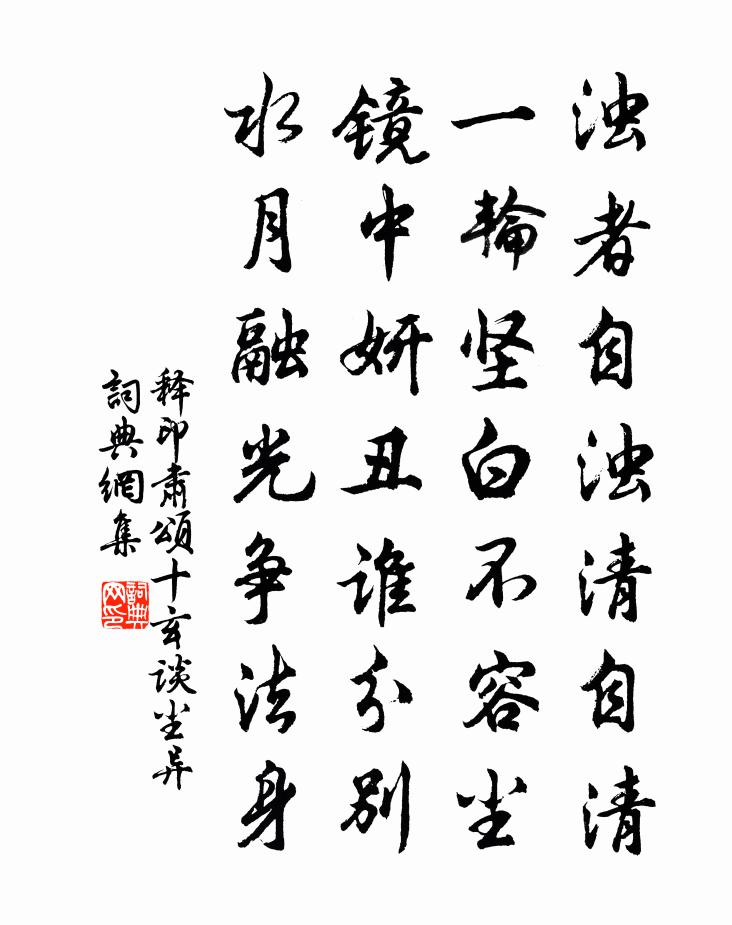 浊者自浊清自清
一輪坚白不容尘
镜中妍丑谁分别
水月融光争法身
释印肃頌十玄谈尘异
詞典網集
詞典网印